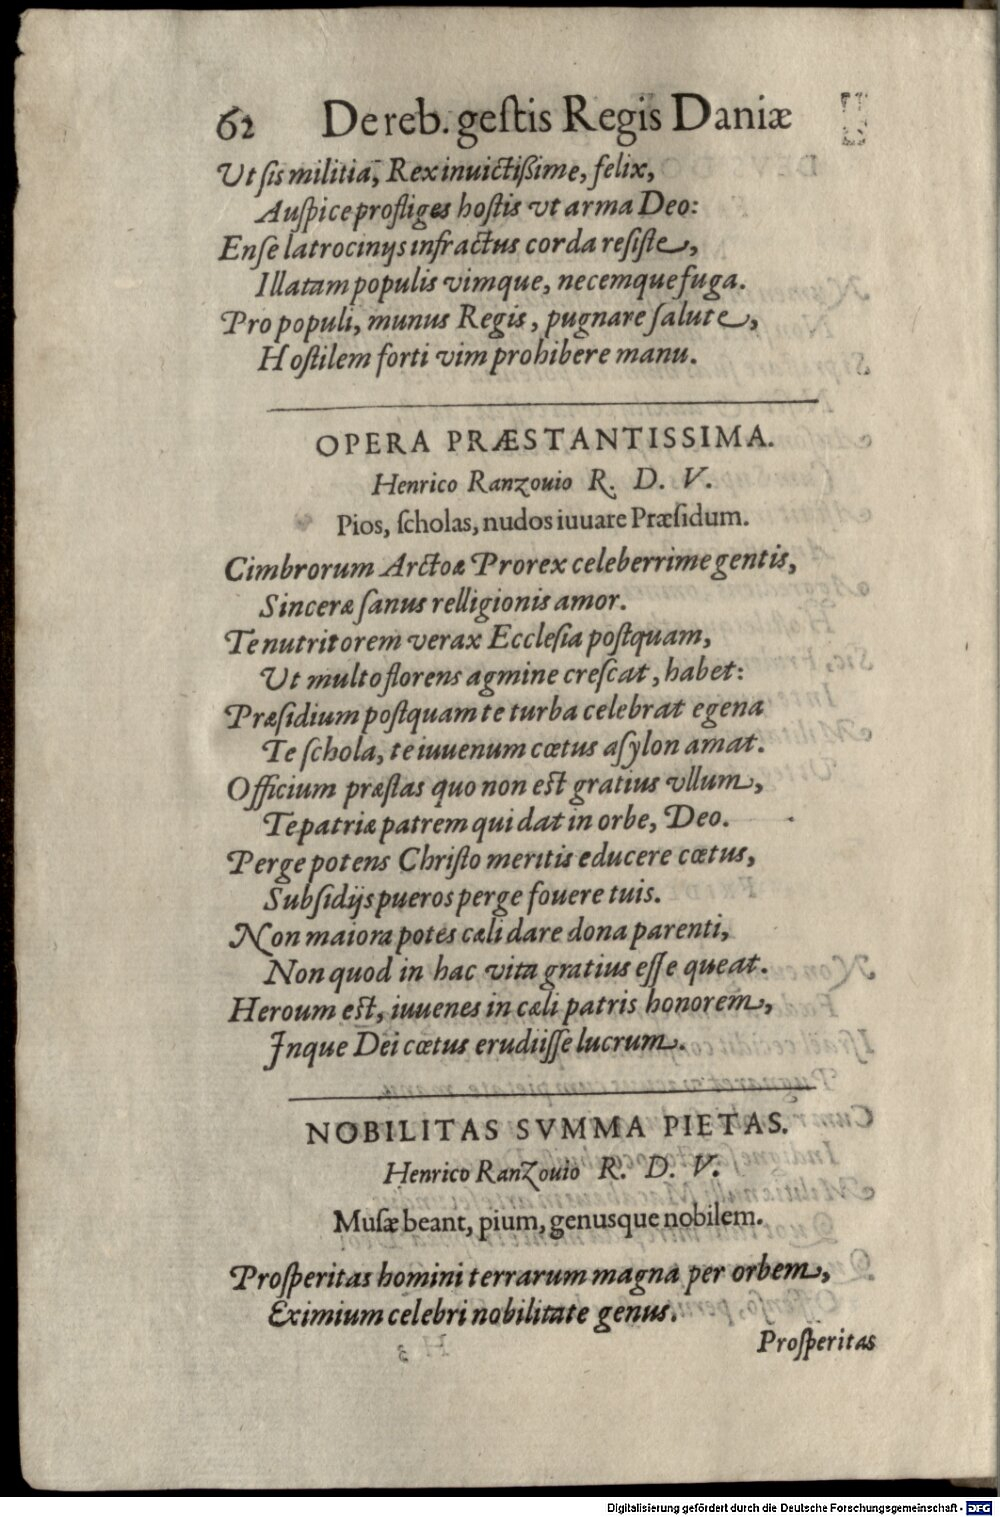 62 De reb. gestis Regis Daniæ
Ut sis militiā, Rex inuictißime, felix,
Auspice profliges hostis vt arma Deo:
Ense latrocinijs infractus corda resiste,
Illatam populis vimque, necemque fuga.
Pro populi, munus Regis, pugnare salute,
Hostilem forti vim prohibere manu.
OPERA PRÆSTANTISSIMA.
Henrico Ranzouio R. D. V.
Pios, scholas, nudos iuuare Præsidum.
Cimbrorum Arctoæ Prorex celeberrime gentis,
Sinceræ sanus relligionis amor.
Te nutritorem verax Ecclesia postquam,
Ut multo florens agmine crescat, habet:
Præsidium postquam te turba celebrat egena
Te schola, te iuuenum cœtus asylon amat.
Officium præstas quo non est gratius vllum,
Te patriæ patrem qui dat in orbe, Deo.
Perge potens Christo meritis educere cœtus,
Subsidijs pueros perge fouere tuis.
Non maiora potes cæli dare dona parenti,
Non quod in hac vita gratius esse queat.
Heroum est, iuuenes in cæli patris honorem,
Inque Dei cœtus erudiisse lucrum.
NOBILITAS SVMMA PIETAS.
Henrico Ranzouio R. D. V.
Musæ beant, pium, genusque nobilem.
Prosperitas homini terrarum magna per orbem,
Eximium celebri nobilitate genus.
Prosperitas
Digitalisierung gefördert durch die Deutsche Forschungsgemeinschaft - DFG